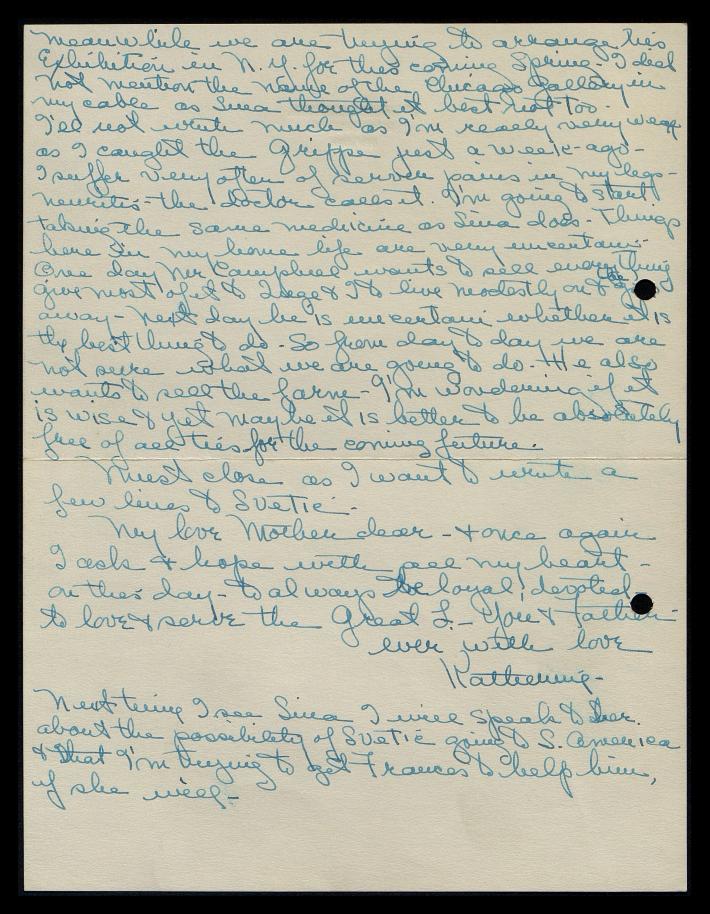 Meanwhile we are trying to arrange his
Exhibition in N.Y. for this coming Spring. I did
not mention the name of the Chicago Gallery in
my cable as Sina thought it best not too.
I'll not write much as I'm really very weak
as I caught the Grippe just a week-ago-
I suffer very often of severe pains in my legs-
neuritis-the doctor calls it. I'm going to start
taking the same medicine as Sina does-Things
here in my home life are very uncertain-
One day Mr Campbell wants to sell everything
give most of it to & I to live modestly or the
away-next day he is uncertain whether it is
the best thing to do. So from day to day we are
not sure what we are going to do. He also
wants to sell the farm-I'm wondering if it
is wise & yet maybe it is better to be absolutely
free of all ties for the coming future.
Must close as I want to write a
few lines to Svetic-
My love Mother dear-& once again
I ask & hope with all my heart-
on this day-to always be loyal, devoted-
to love & serve the Great L.-You & Father-
ever with love
Katherine-
Next time I see Sina I will speak to her.
about the possibility of Svetic going to S. America
& that I'm trying to get Frances to help him,
if she will-